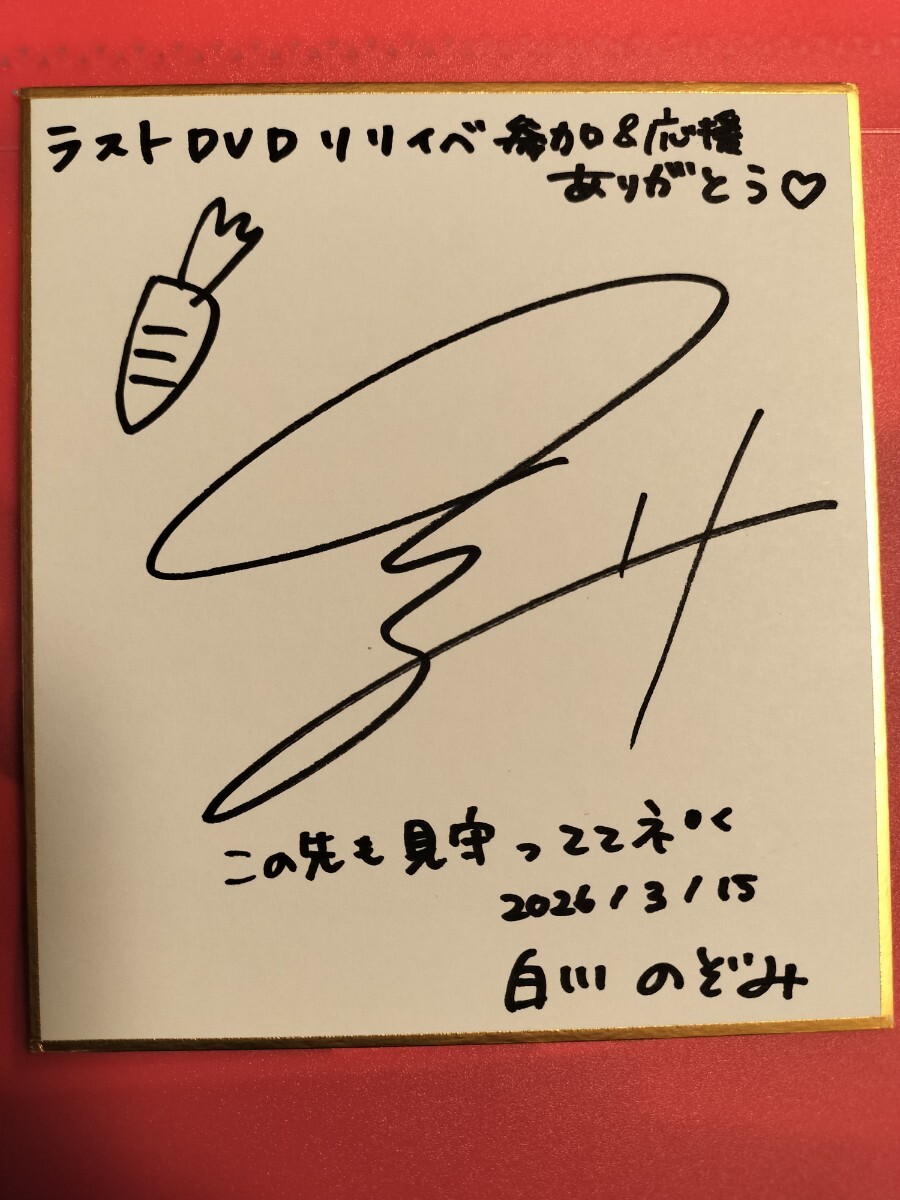 ラストDVDリリイベ参加&応援
ありがとう♡
この先も見守っててネ
2026/3/15
白川のぞみ